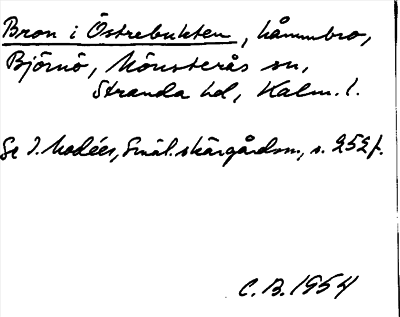 Bron i Östrebukten, kåmmbro,
Björnö, Mönsterås sn,
Stranda hd, Kalm. l.
Se I. Modéer, Smål. skärgårdsn., s. 252 f.
C. B. 1954